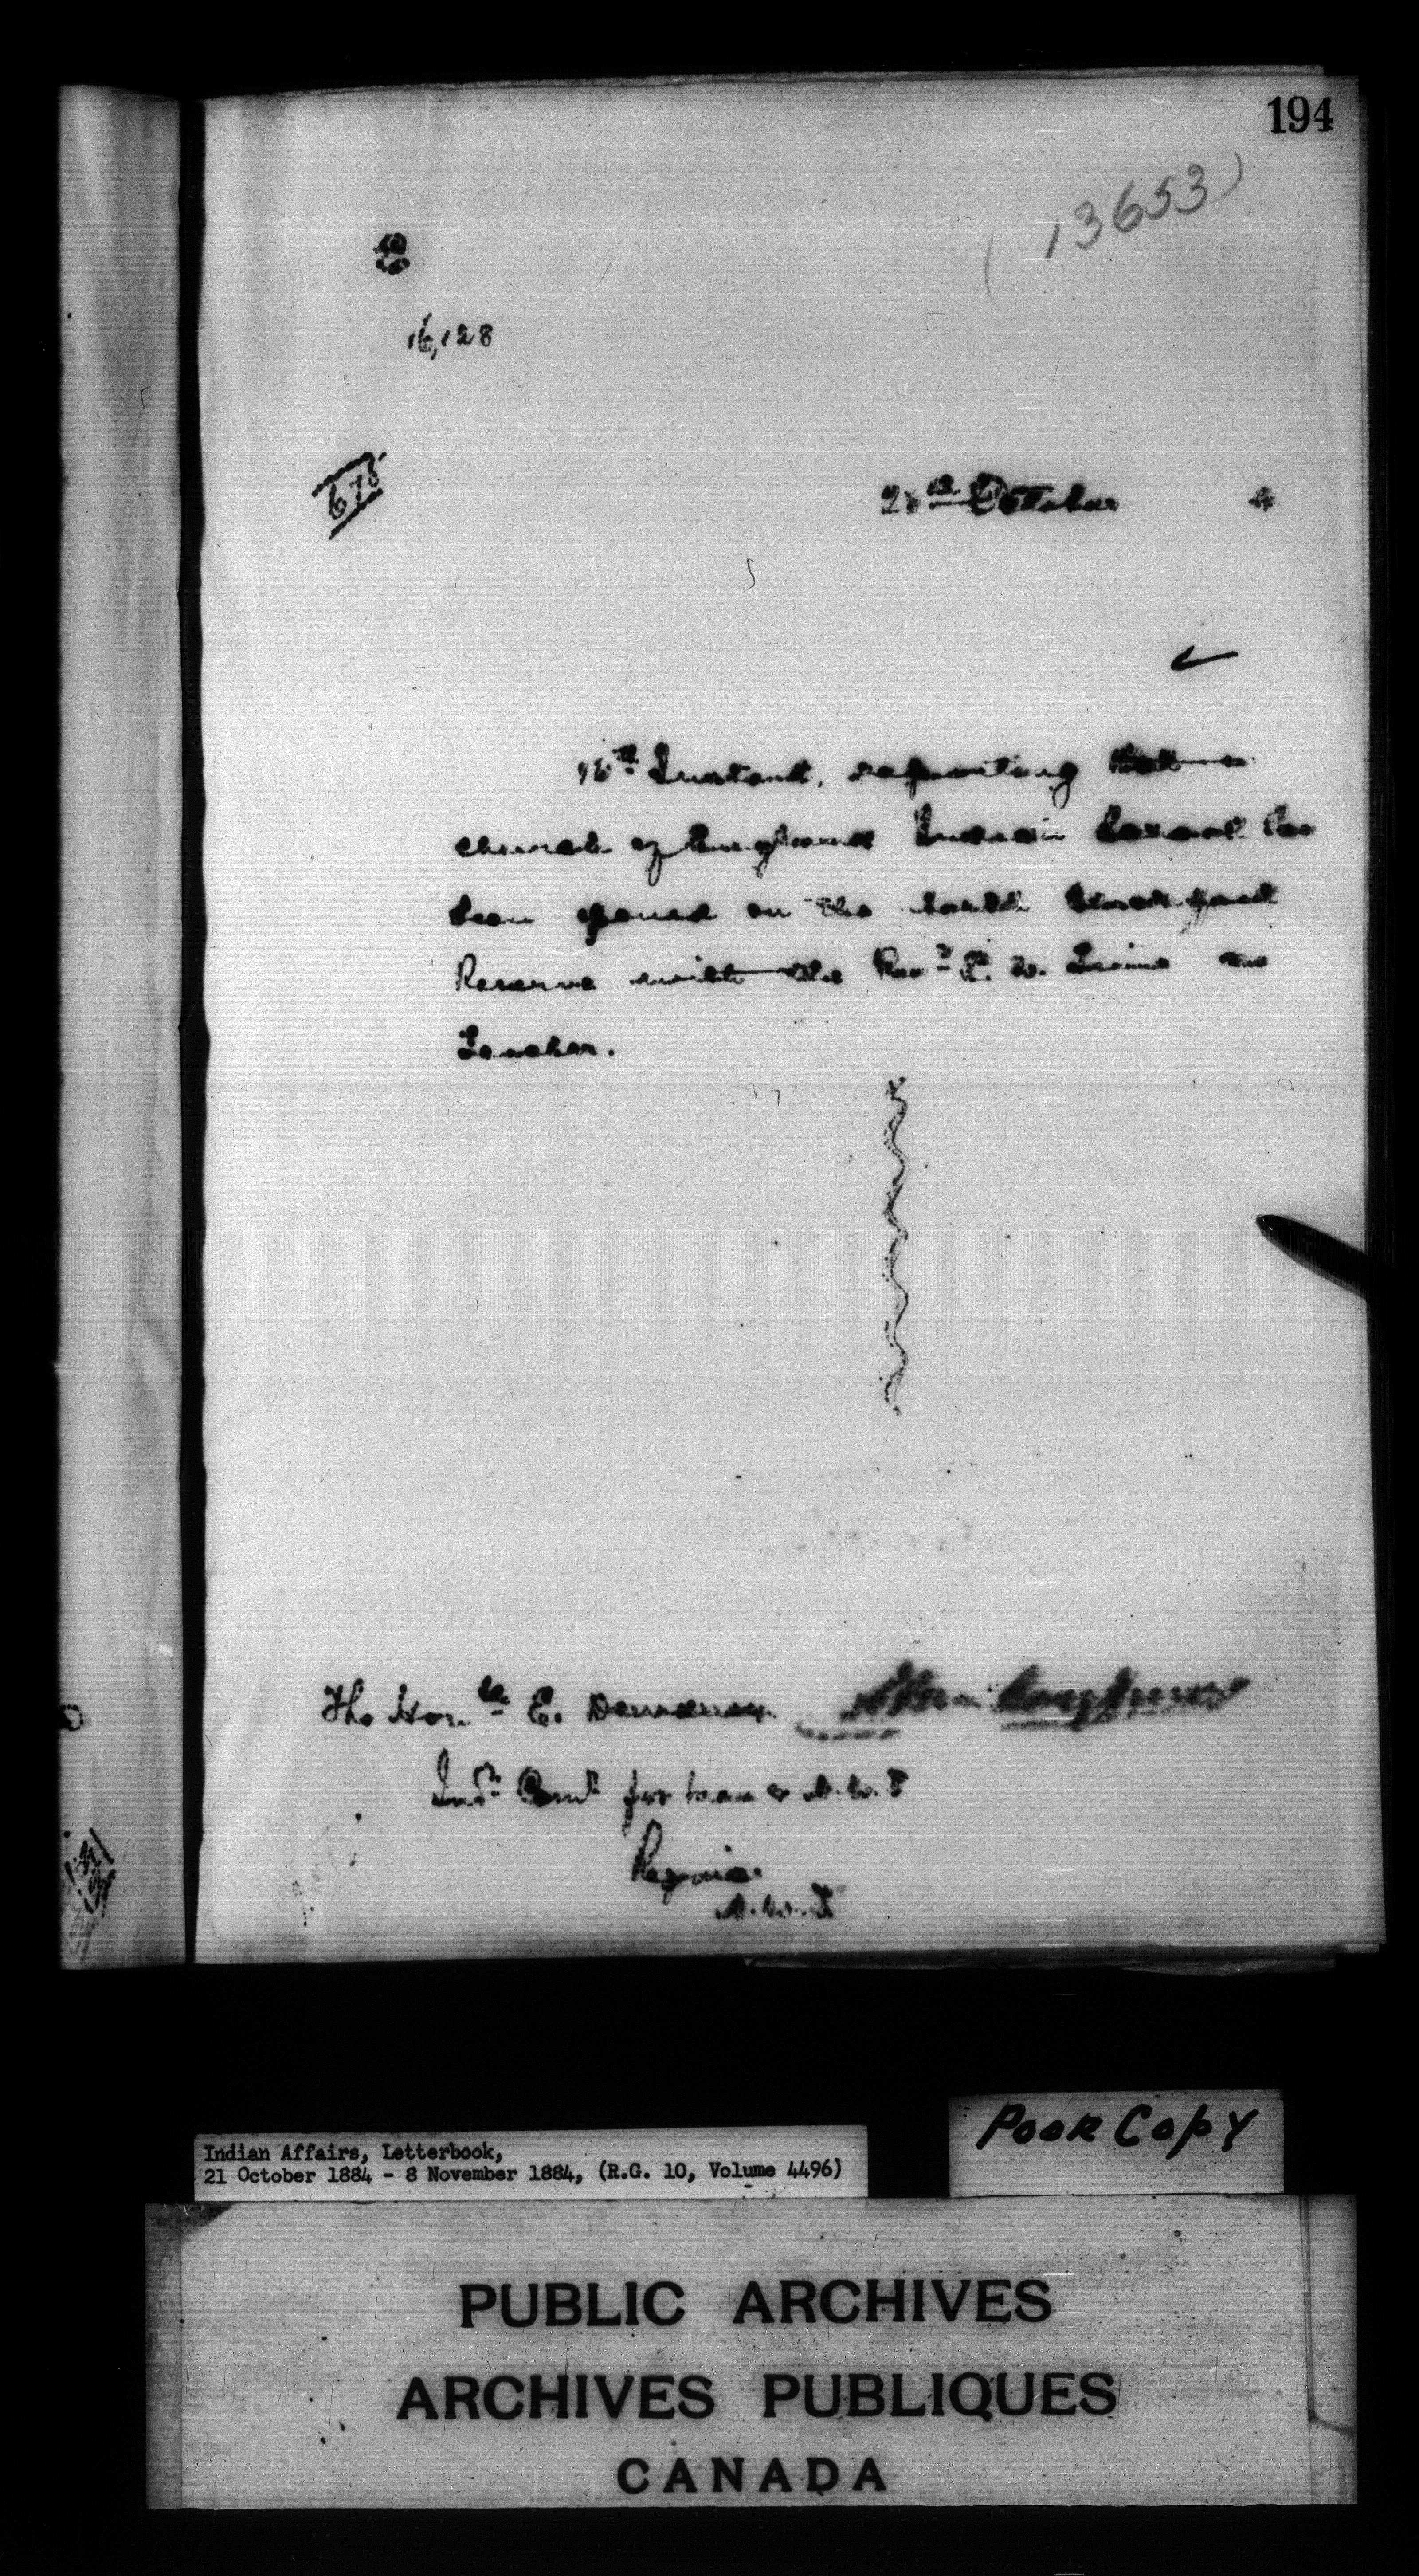 194
(13653)
16,128
678
October 4
16th Instant, reporting that a
church of England Indian School has
been opened on the North Blackfoot
Reserve with the Revd as
Teacher.
The Honble E. Dewdney
Indn Comr for Man & N.W.T
Regina
N.W.T
Poor Copy
Indian Affairs, Letterbook,
21 October 1884 - 8 November 1884, (R.G. 10, Volume 4496)
PUBLIC ARCHIVES
ARCHIVES PUBLIQUES
CANADA